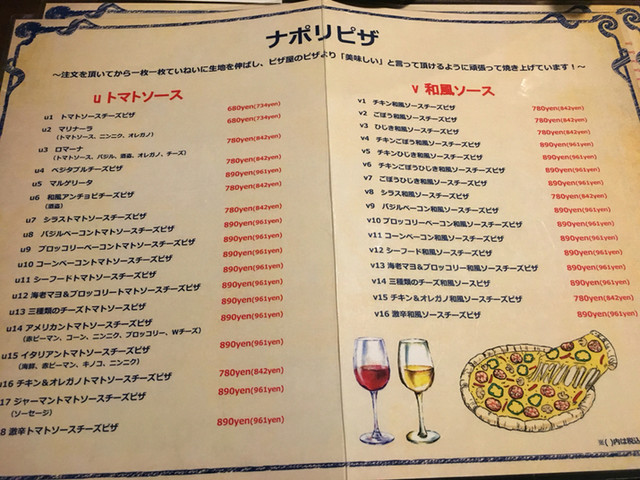 ナポリピザ
～注文を頂いてから一枚一枚ていねいに生地を伸ばし、ピザ屋のピザより「美味しい」と言って頂けるように頑張って焼き上げています！～
u トマトソース
u1 トマトソースチーズピザ 680yen(734yen)
u2 マリナーラ 680yen(734yen)
(トマトソース、ニンニク、オレガノ)
u3 ロマーナ 780yen(842yen)
(トマトソース、バジル、頭歯、オレガノ、チーズ)
u4 ベジタブルチーズピザ 780yen(842yen)
u5 マルゲリータ 890yen(961yen)
u6 和風アンチョビチーズピザ 780yen(842yen)
u7 シラストマトソースチーズピザ 780yen(842yen)
u8 バジルベーコントマトソースチーズピザ 890yen(961yen)
u9 ブロッコリーベーコントマトソースチーズピザ 890yen(961yen)
u10 コーンベーコントマトソースチーズピザ 890yen(961yen)
u11 シーフードトマトソースチーズピザ 890yen(961yen)
u12 海老マヨ＆ブロッコリートマトソースチーズピザ 890yen(961yen)
u13 三種類のチーズトマトソースピザ 890yen(961yen)
u14 アメリカントマトソースチーズピザ 890yen(961yen)
(赤ピーマン、コーン、ニンニク、ブロッコリー、Wチーズ)
u15 イタリアントマトソースチーズピザ 890yen(961yen)
(海鮮、赤ピーマン、キノコ、ニンニク)
u16 チキン＆オレガノトマトソースチーズピザ 780yen(842yen)
17 ジャーマントマトソースチーズピザ 890yen(961yen)
(ソーセージ)
8 激辛トマトソースチーズピザ 890yen(961yen)
v 和風ソース
v1 チキン和風ソースチーズピザ 780yen(842yen)
v2 ごぼう和風ソースチーズピザ 780yen(842yen)
v3 ひじき和風ソースチーズピザ 780yen(842yen)
v4 チキンごぼう和風ソースチーズピザ 890yen(961yen)
v5 チキンひじき和風ソースチーズピザ 890yen(961yen)
v6 チキンごぼうひじき和風ソースチーズピザ 890yen(961yen)
v7 ごぼうひじき和風ソースチーズピザ 890yen(961yen)
v8 シラス和風ソースチーズピザ 780yen(842yen)
v9 バジルベーコン和風ソースチーズピザ 890yen(961yen)
v10 ブロッコリーベーコン和風ソースチーズピザ 890yen(961yen)
v11 コーンベーコン和風ソースチーズピザ 890yen(961yen)
v12 シーフード和風ソースチーズピザ 890yen(961yen)
v13 海老マヨ＆ブロッコリー和風ソースチーズピザ 890yen(961yen)
v14 三種類のチーズ和風ソースピザ 890yen(961yen)
v15 チキン＆オレガノ和風ソースチーズピザ 780yen(842yen)
v16 激辛和風ソースチーズピザ 890yen(961yen)
※( )内は税込